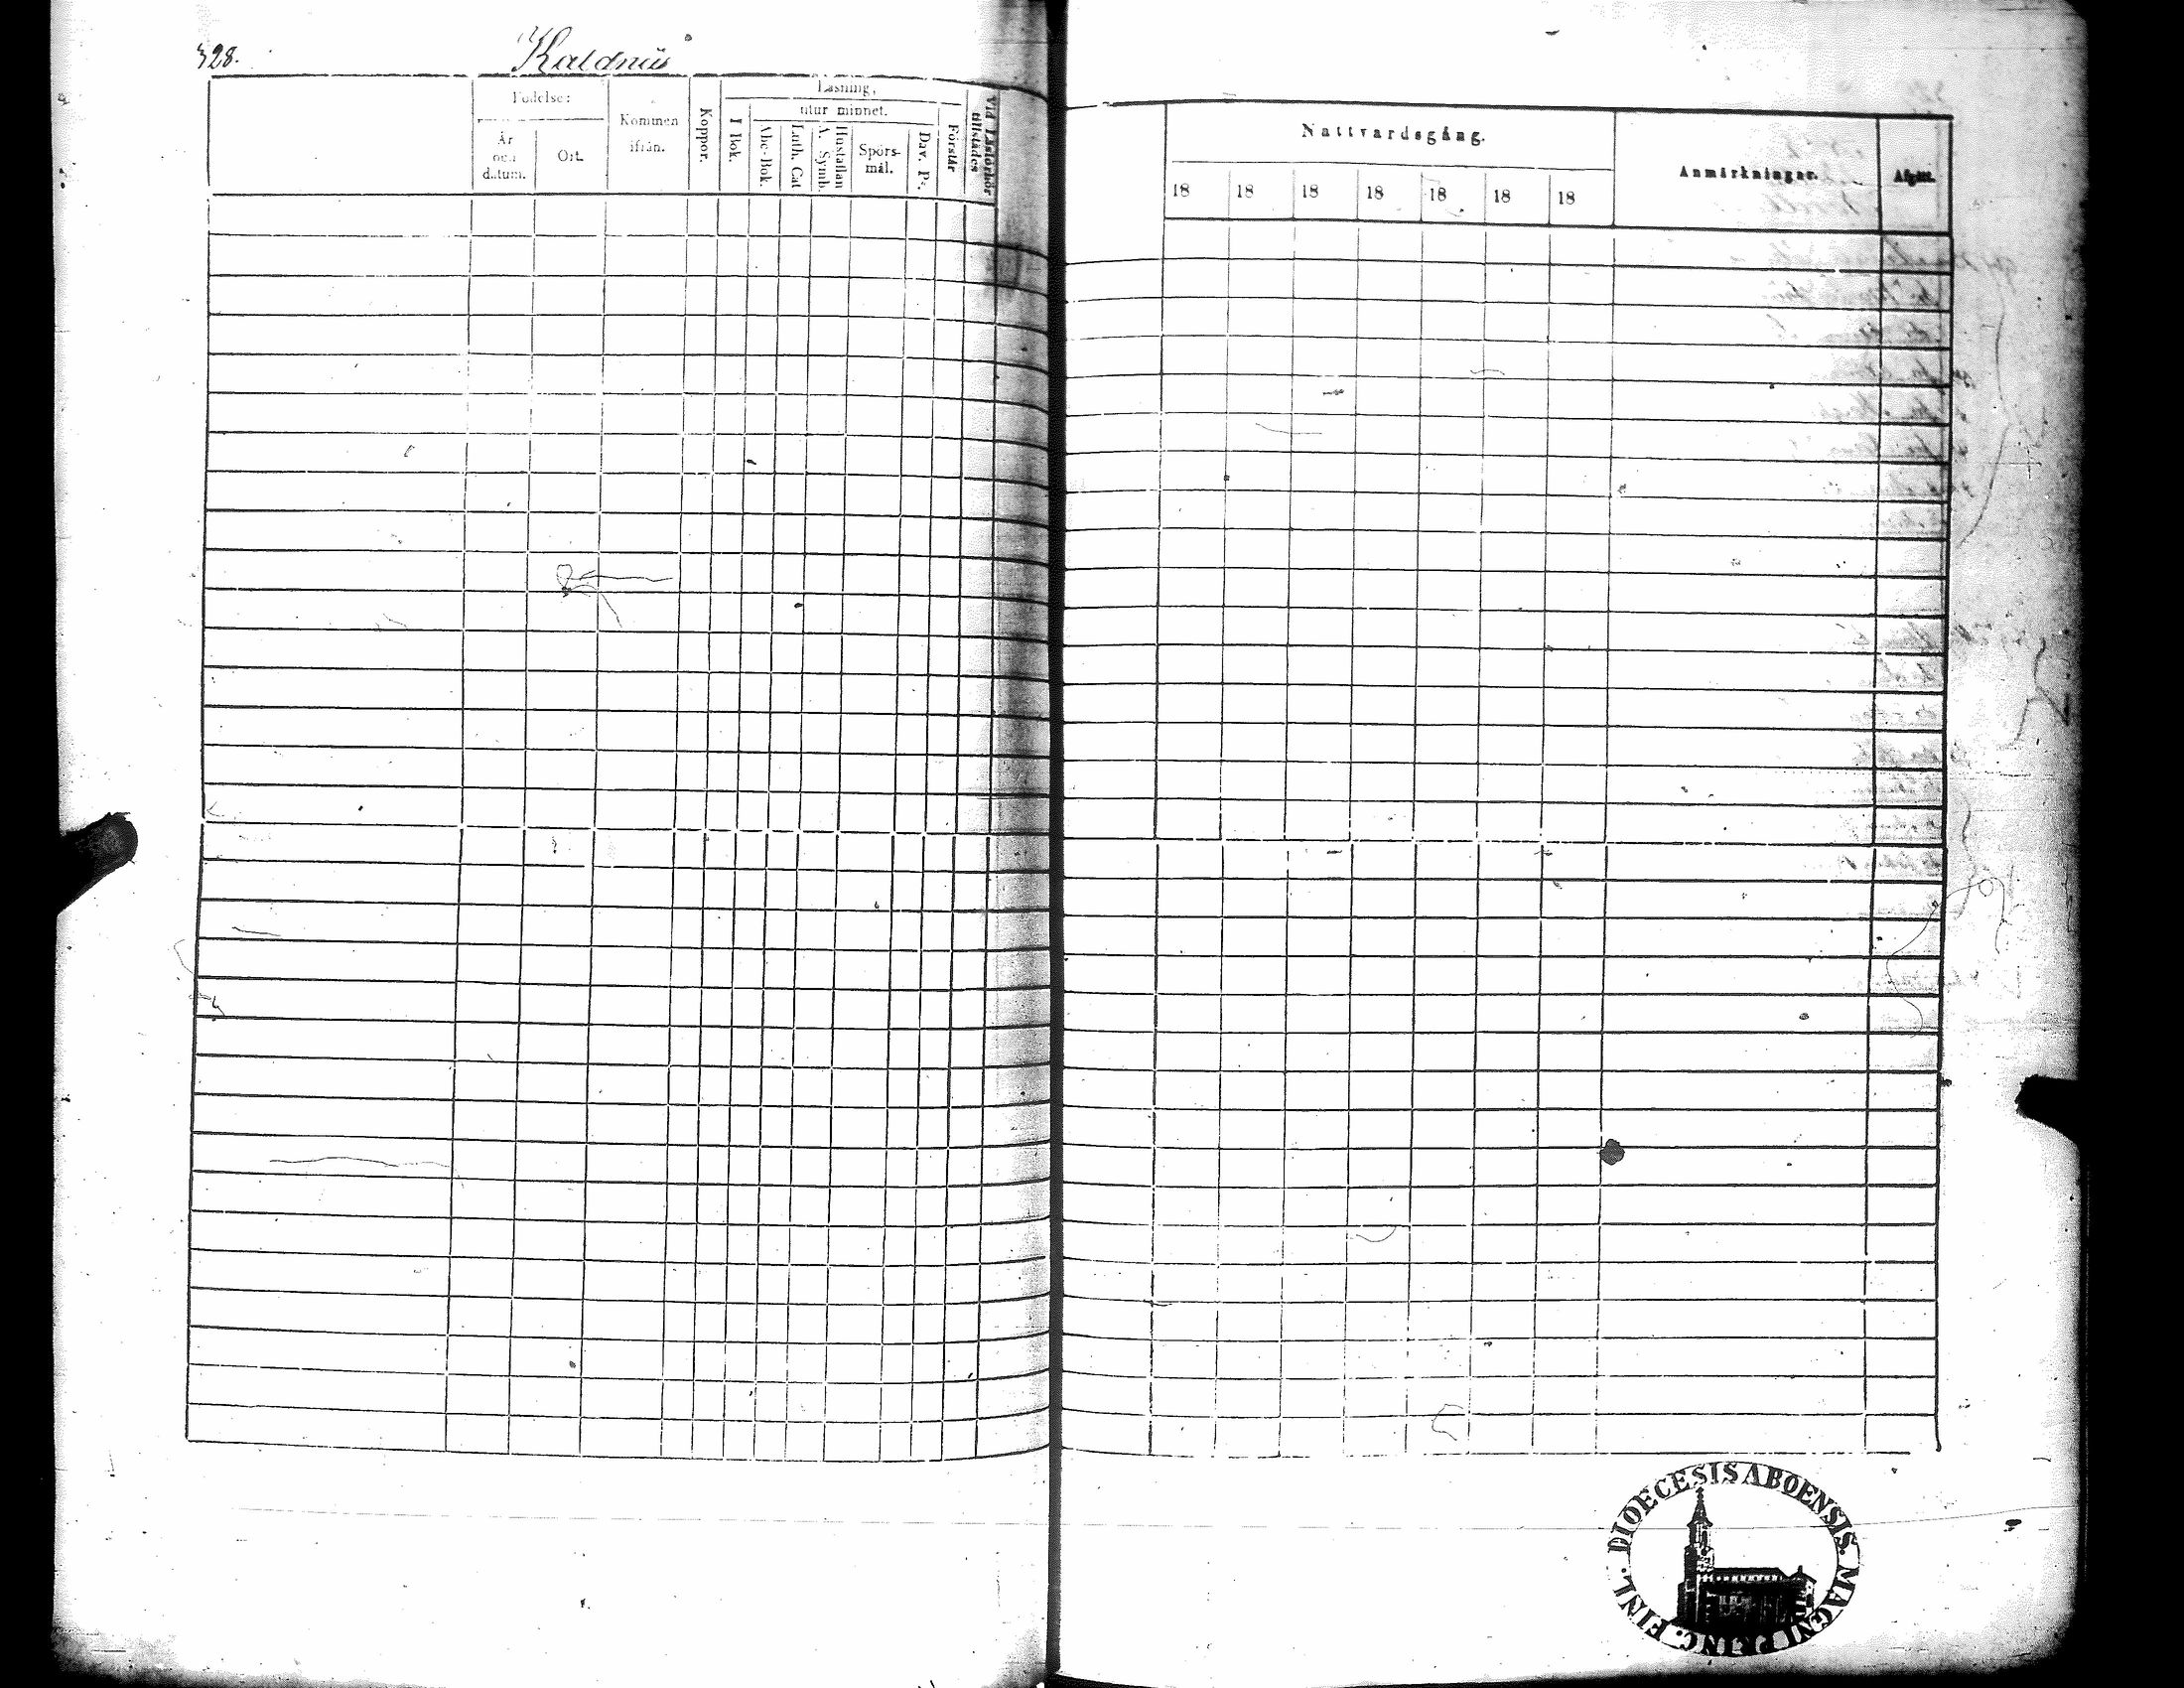 328.
Kaldnäs
Födelse: Kommen ifrån. Koppor. Läsning, Vid Läsförhör tillstädes
År och datum. Ort. I Bok. utur minnet. Förstår
Abc-Bok. Luth. Cat. A. Symb. Hustaflan Spörsmål. Dav. Ps.
Nattvardsgång. Anmärkningar. Afgått.
18 18 18 18 18 18 18
DIOECESIS ABOENSIS. MAGNI PRINC. FINL.